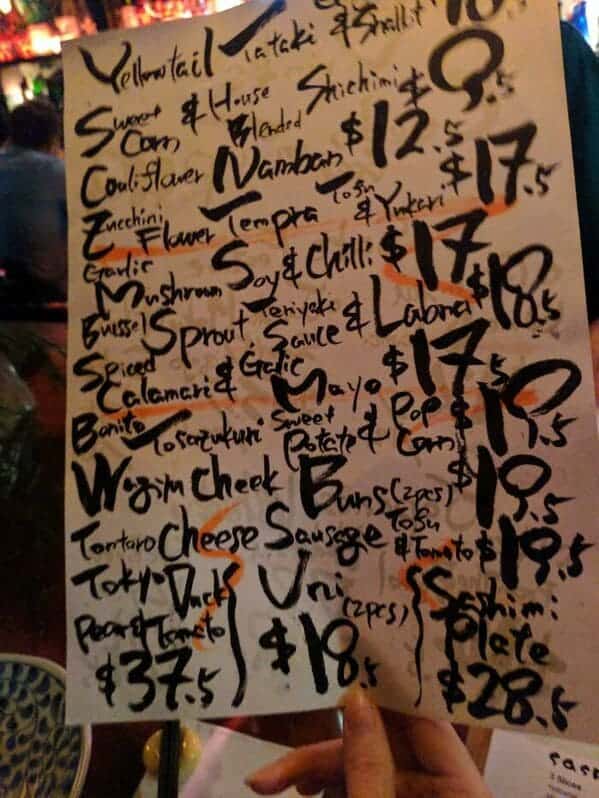 Yellowtail Tataki & Shallit
Sweet Corn & House Blended Shichimi $9.5
Cauliflower Namban $12.5
Zucchini Flower Tempra Tosu & Yukari $17.5
Garlic Mushroom Soy & Chilli $17
Bussel Sprout Teriyaki Sauce & Labna $18.5
Spiced Calamari & Galic Mayo $17.5
Bonito Tosazukuri Sweet Potato & Pop Corn $19.5
Wagyu Cheek Buns (2pcs) $19.5
Tontoro Cheese Sausage Tosu & Tomato $19.5
Tokyo Duck Pear & Tomato $37.5
Uni (2pcs) $18.5
Sashimi Plate $28.5